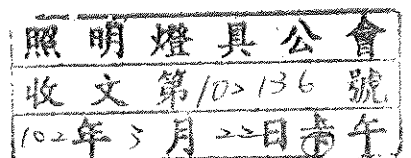 照明燈具公會
收文第102136號
102年3月22日 午